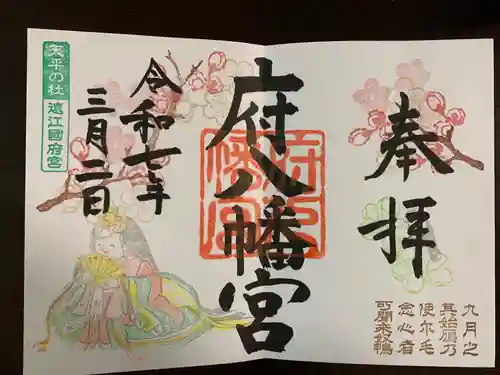 奉拝
九月之
其始鴈乃
使尓毛
念心者
可聞来奴鴨
府八幡宮
府八幡宮
令和七年
三月二日
天平の社
遠江國府宮